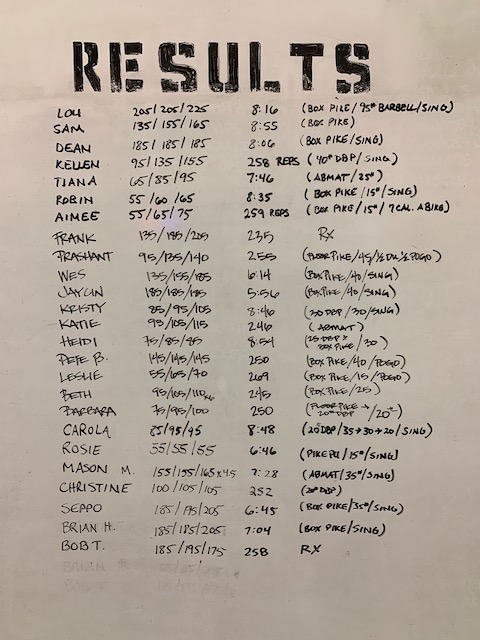 RESULTS
LOU 205/205/225 8:16 (BOX PIKE/95# BARBELL/SING)
SAM 135/155/165 8:55 (BOX PIKE)
DEAN 185/185/185 8:06 (BOX PIKE/SING)
KELLEN 95/135/155 258 REPS (40# DBP/SING)
TIANA 65/85/95 7:46 (ABMAT/25#)
ROBIN 55/60/65 8:35 (BOX PIKE/15#/SING)
AIMEE 55/65/75 259 REPS (BOX PIKE/15#/7CAL. ABIKE)
FRANK 135/185/205 235 RX
PRASHANT 95/135/140 255 (FLOOR PIKE/45/½ DU, ½ POGO)
WES 135/155/185 6:14 (BOX PIKE/40/SING)
JAYLIN 185/185/185 5:56 (BOX PIKE/40/SING)
KRISTY 85/95/105 8:46 (30 DBP/30/SING)
KATIE 95/105/115 246 (ABMAT)
HEIDI 75/85/85 8:54 (25 DBP > BOX PIKE/30)
PETE B. 145/145/145 250 (BOX PIKE/40/POGO)
LESLIE 55/65/70 269 (BOX PIKE/15/POGO)
BETH 95/105/110 245 (BOX PIKE/25)
BARBARA 75/95/100 250 (FLOOR PIKE → 20# DBP/20#)
CAROLA 85/95/95 8:48 (20# DBP/35→30→20/SING)
ROSIE 55/55/55 6:46 (PIKE PU/15#/SING)
MASON M. 155/155/165x4.5 7:28 (ABMAT/35#/SING)
CHRISTINE 100/105/105 252 (20# DBP)
SEPPO 185/195/205 6:45 (BOX PIKE/35#/SING)
BRIAN H. 185/185/205 7:04 (BOX PIKE/SING)
BOB T. 185/195/175 258 RX